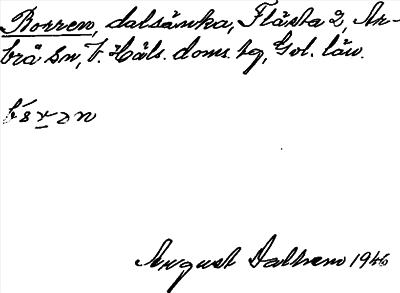 Borren, dalsänka, Flästa 2, Ar-
brå sn, V. Häls. doms. tg, Gvl. län.
August Dalhem 1946